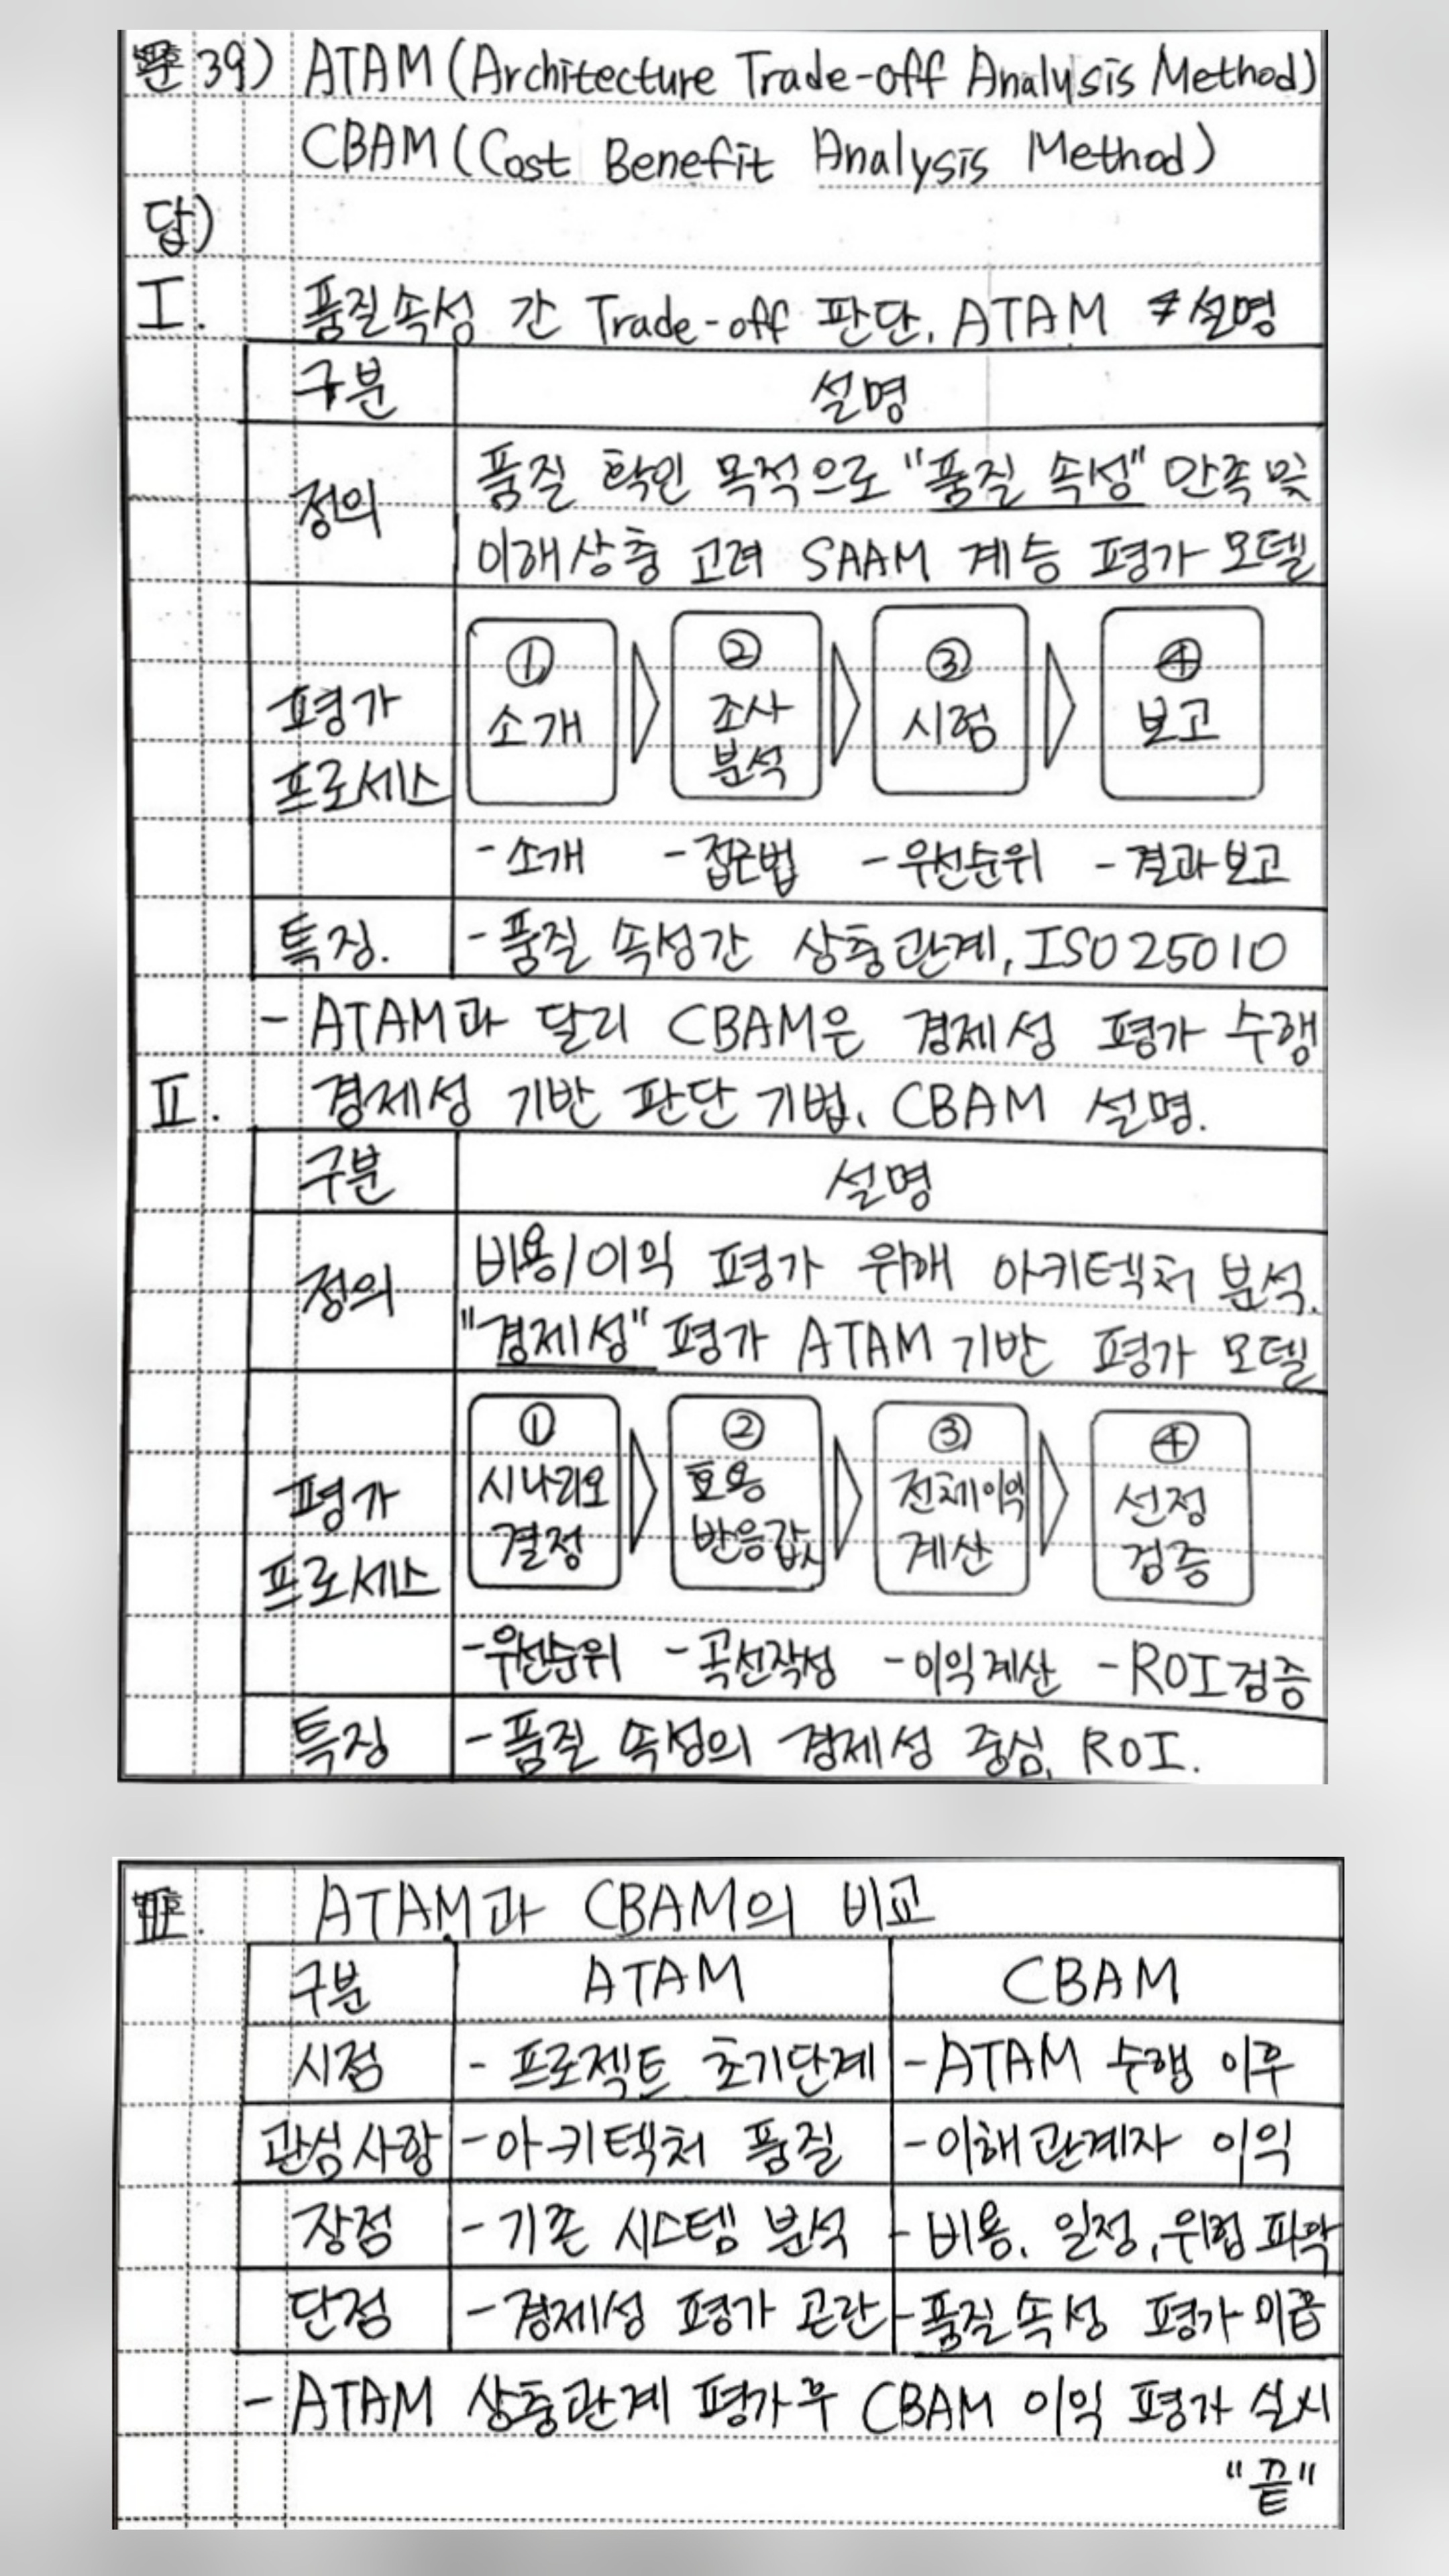 문 39) ATAM (Architecture Trade-off Analysis Method)
CBAM (Cost Benefit Analysis Method)
답)
I. 품질속성 간 Trade-off 판단, ATAM 설명
구분 설명
정의 품질 확인 목적으로 "품질 속성" 만족 및
이해상충 고려 SAAM 계승 평가 모델
평가 프로세스
① 소개 ② 조사 분석 ③ 시험 ④ 보고
- 소개 - 접근법 - 우선순위 - 결과보고
특징. - 품질 속성간 상충관계, ISO 25010
- ATAM과 달리 CBAM은 경제성 평가 수행
II. 경제성 기반 판단 기법, CBAM 설명.
구분 설명
정의 비용/이익 평가 위해 아키텍처 분석.
"경제성" 평가 ATAM 기반 평가 모델
평가 프로세스
① 시나리오 결정 ② 효용 반응값 ③ 전체이익 계산 ④ 선정 검증
- 우선순위 - 곡선작성 - 이익계산 - ROI 검증
특징 - 품질 속성의 경제성 중심, ROI.
III. ATAM과 CBAM의 비교
구분 ATAM CBAM
시점 - 프로젝트 초기단계 - ATAM 수행 이후
관심사항 - 아키텍처 품질 - 이해관계자 이익
장점 - 기존 시스템 분석 - 비용, 일정, 위험 파악
단점 - 경제성 평가 곤란 - 품질속성 평가 미흡
- ATAM 상충관계 평가후 CBAM 이익 평가 실시
"끝"